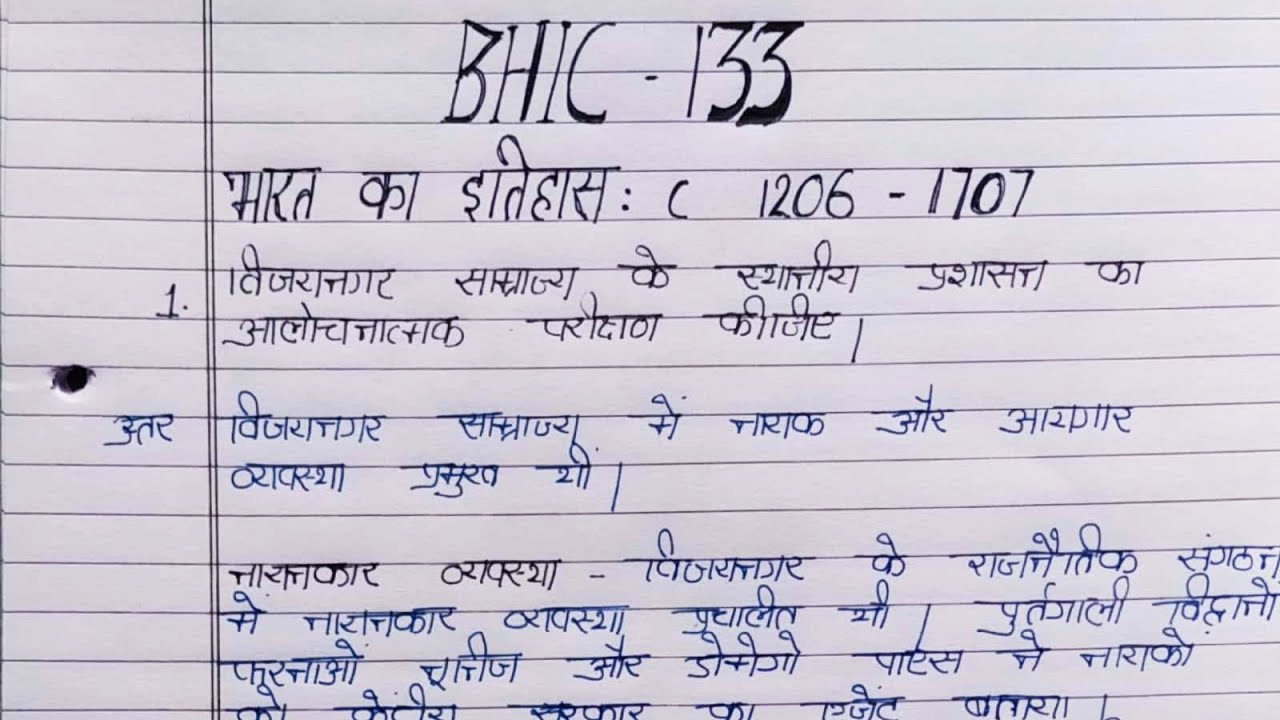 BHIC - 133
भारत का इतिहास : C 1206 - 1707
1. विजयनगर साम्राज्य के स्थानीय प्रशासन का
आलोचनात्मक परीक्षण कीजिए।
उत्तर विजयनगर साम्राज्य में नायक और आयगार
व्यवस्था प्रमुख थी।
नायनकार व्यवस्था - विजयनगर के राजनैतिक संगठन
में नायनकार व्यवस्था प्रचलित थी। पुर्तगाली विद्वानो
फरनाओं नूनीज और डोमेगो पाएस ने नायको
को केंद्रीय सरकार का एजेंट बताया।